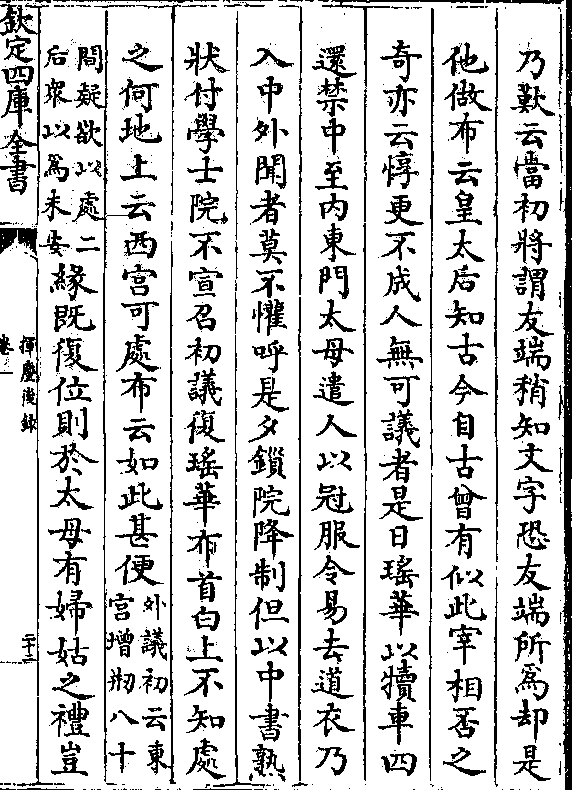 乃歎云當初將謂友端稍知文字恐友端所爲却是
他做布云皇太后知古今自古曾有似此宰相否之
奇亦云惇更不成人無可議者是日瑤華以犢車四
還禁中至内東門太母遣人以冠服令易去道衣乃
入中外聞者莫不懽呼是夕鎖院降制但以中書熟
狀付學士院不宣召初議復瑤華布首白上不知處
之何地上云西宮可處布云如此甚便外議初云東宮增剏八十
間疑欲以處二后衆以爲未安緣既復位則於太母有婦姑之禮豈
欽定四庫全書
揮麈後録
卷一
二十三